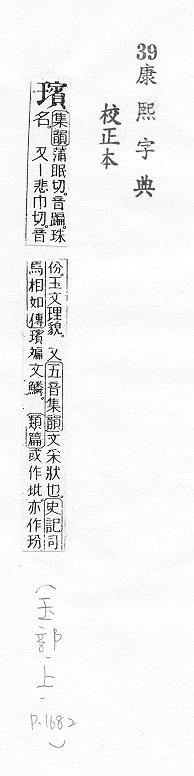 39康熙字典
校正本
璸
集韻蒲眠切。音蹁。珠
名。又丨悲巾切。音
份。玉文理貌。又五音集韻文采狀也。史記司
馬相如傳璸斒文鱗。類篇或作玭亦作玢
(玉部·上·
p.1682)